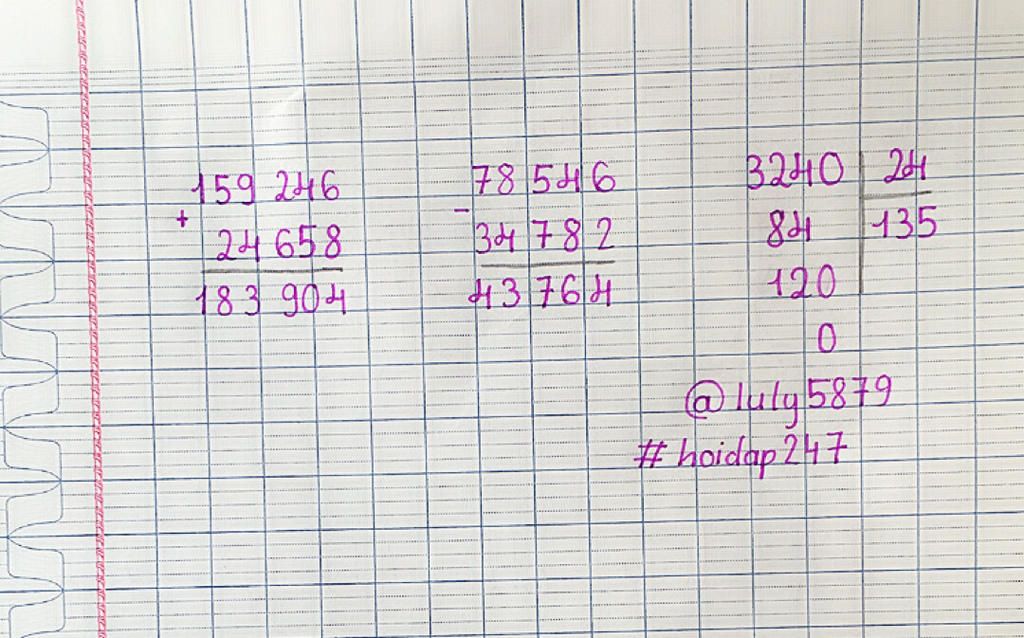 159 246
+
24 658
183 904
78 546
-
34 782
43 764
3240 24
84 135
120
0
@luly5879
#hoidap247